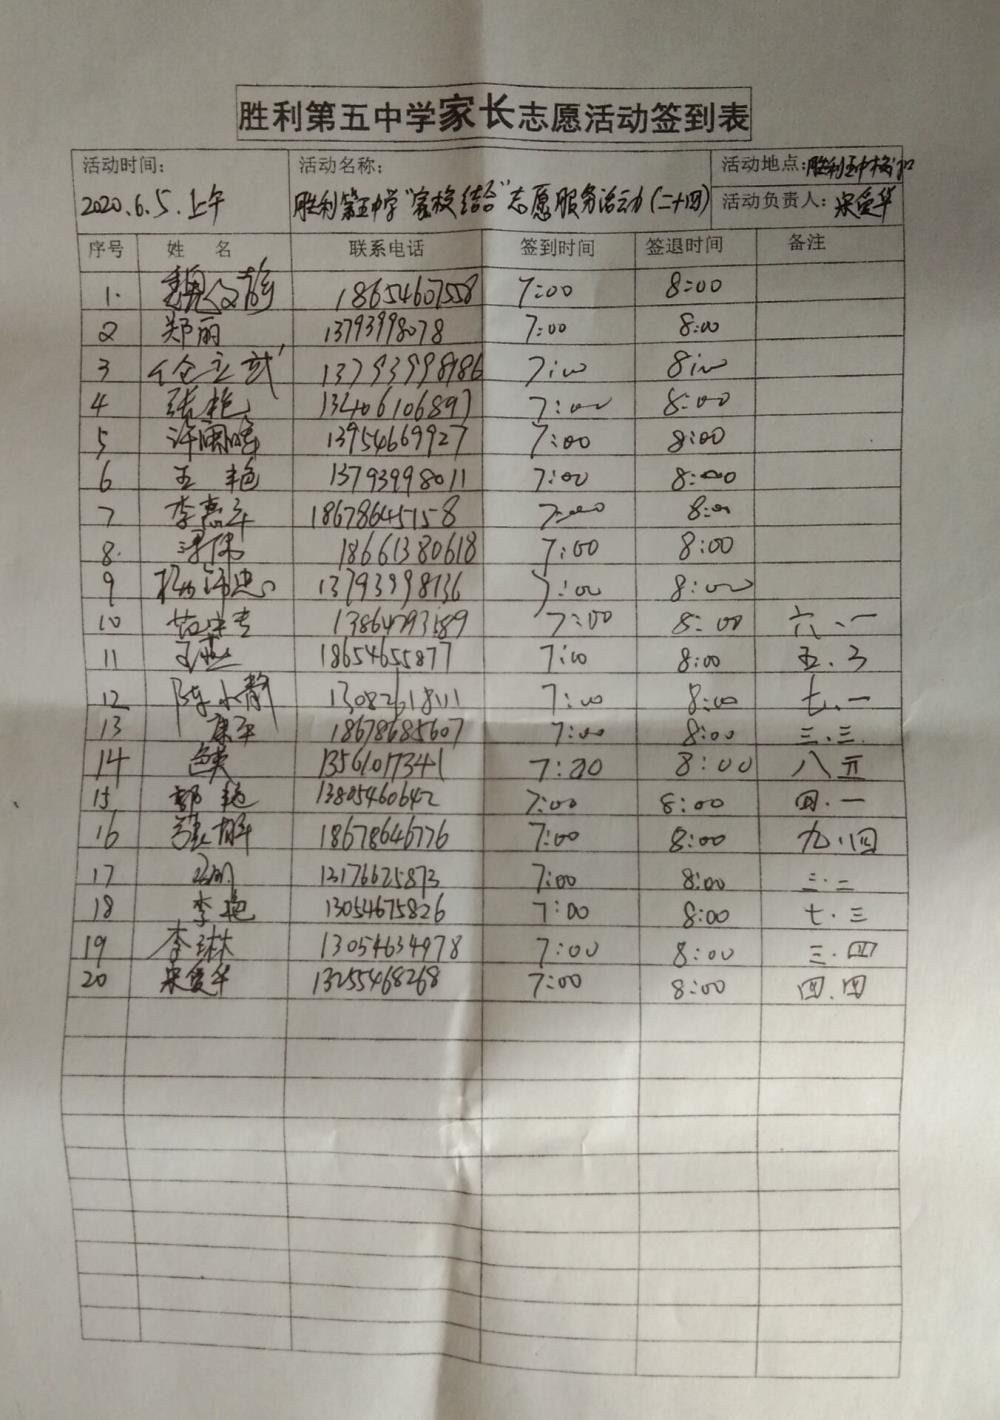 胜利第五中学家长志愿活动签到表
活动时间: 活动名称: 活动地点:胜利五中校门口
2020.6.5.上午 胜利第五中学"家校结合"志愿服务活动(二十四) 活动负责人:宋爱华
序号 姓 名 联系电话 签到时间 签退时间 备注
1. 18654607558 7:00 8:00
2 郑丽 13793998078 7:00 8:00
3 13793998986 7:00 8:00
4 张艳 13406106897 7:00 8:00
5 13954669927 7:00 8:00
6 王艳 13793998011 7:00 8:00
7 18678645158 7:00 8:00
8. 18661380618 7:00 8:00
9 13793998736 7:00 8:00
10 7:00 8:00 六、一
11 18654655877 7:00 8:00 五、3
12 陈永静 13082618111 7:00 8:00 七、一
13 康平 18678685607 7:00 8:00 三、三
14 13561077341 7:00 8:00 八五
15 郭艳 13805460642 7:00 8:00 四.一
16 18678646776 7:00 8:00 九.四
17 13176625873 7:00 8:00 三.二
18 李艳 13054675826 7:00 8:00 七.三
19 李琳 13054634978 7:00 8:00 三.四
20 宋爱华 13255468268 7:00 8:00 四.四